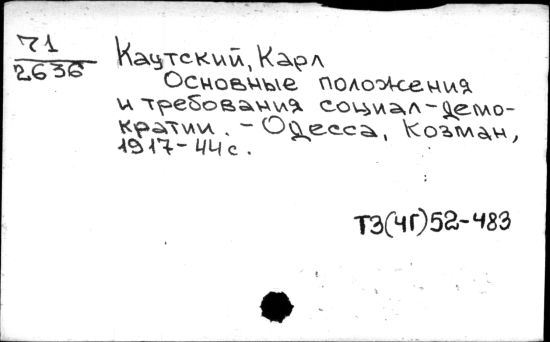 71
2636
Каутский, Карл
Основные положения
и требования социал-демо-
кратии. - Одесса, Козман,
1917-44с.
Т3(4Г)52-483